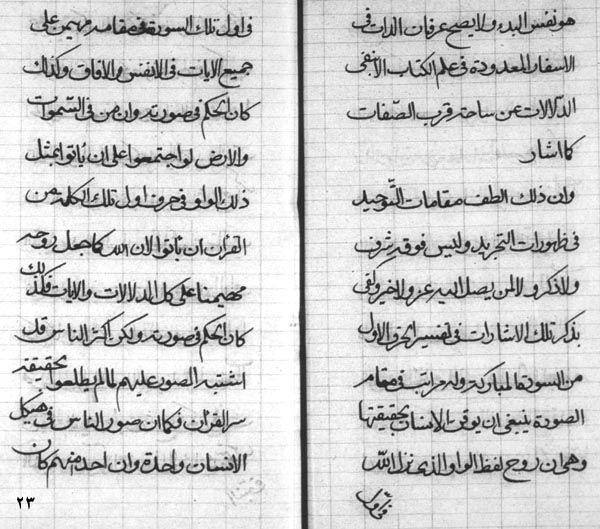 هو نفس البدء ولا يصح عرفان الذات فى
الاسفار المعدودة فى علم الكتاب الا بنفى
الدلالات عن ساحة قرب الصفات
كما اشار
وان ذلك الطف مقامات التوحيد
فى ظهورات التجريد وليس فوقه شرف
ولا ذكر ولا لمن يصل اليه عز ولا خير وكفى
بذكر تلك الاشارات فى تفسير الحرف الاول
من السورة المباركة وله مراتب فى مقام
الصورة ينبغى ان يوقن الانسان بحقيقتها
وهى ان روح لفظ الواو الذى نزل الله
فى اول
فى اول تلك السورة فى مقامه مهيمن على
جميع الايات فى الانفس والافاق وكذلك
كان الحكم فى صورته وان من فى السموات
والارض لو اجتمعوا على ان ياتوا بمثل
ذلك الواو فى حرف اول تلك الكلمة من
القران لن ياتوا لان الله كما جعل روحه
مهيمنا على كل الدلالات والايات فكذلك
كان الحكم فى صورته ولكن اكثر الناس قد
اشتبه الصور عليهم لما لم يطلعوا بحقيقة
سر القران فكما ان صور الناس فى هيكل
الانسان واحدة وان احد منهم كان
٢٣